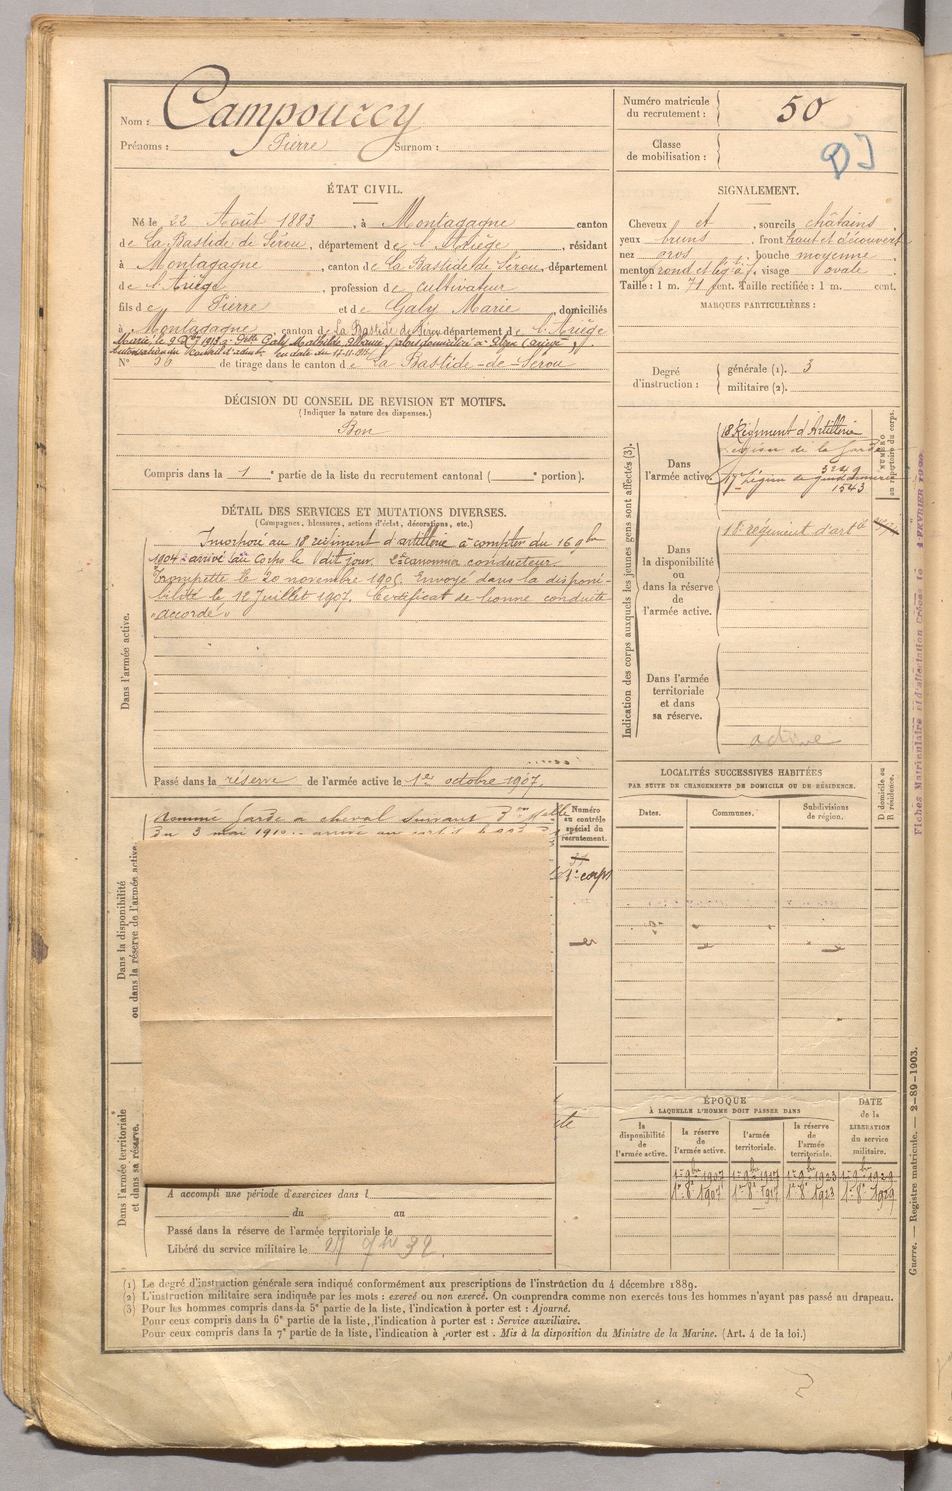 Nom : Campourcy
Prénoms : Pierre Surnom :
Numéro matricule
du recrutement : 50
Classe
de mobilisation :
ÉTAT CIVIL.
Né le 22 Août 1883, à Montagagne canton
de La Bastide de Sérou, département de l'Ariège, résidant
à Montagagne, canton de La Bastide de Sérou, département
de l'Ariège, profession de cultivateur
fils de Pierre et de Galy Marie domiciliés
à Montagagne, canton de La Bastide de Sérou, département de l'Ariège
Marié le 9 1918 à Galy Mathilde Marie domiciliée à (Ariège)
en date du
N° 56 de tirage dans le canton de La Bastide-de-Sérou
SIGNALEMENT.
Cheveux et, sourcils châtains
yeux bruns, front haut et découvert
nez gros, bouche moyenne
menton rond et visage ovale
Taille : 1 m. 71 cent. Taille rectifiée : 1 m. cent.
MARQUES PARTICULIÈRES :
Degré
d'instruction :
générale (1). 3
militaire (2).
DÉCISION DU CONSEIL DE REVISION ET MOTIFS.
(Indiquer la nature des dispenses.)
Bon
Compris dans la 1e partie de la liste du recrutement cantonal ( e portion).
DÉTAIL DES SERVICES ET MUTATIONS DIVERSES.
(Campagnes, blessures, actions d'éclat, décorations, etc.)
Dans l'armée active.
Incorporé au 18 régiment d'artillerie à compter du 16 9bre
1904 arrivé au Corps le dit jour. 2e canonnier conducteur.
Trompette le 20 novembre 1905. Envoyé dans la disponi-
bilité le 12 Juillet 1907. Certificat de bonne conduite
"accordé"
Passé dans la réserve de l'armée active le 1er octobre 1907.
Indication des corps auxquels les jeunes gens sont affectés (3).
NUMÉRO
au répertoire du corps.
Dans
l'armée active.
18 Régiment d'Artillerie
Légion de la Garde
3249
17e Légion de gendarmerie
1543
Dans
la disponibilité
ou
dans la réserve
de
l'armée active.
18 régiment d'artie
Dans l'armée
territoriale
et dans
sa réserve.
active
LOCALITÉS SUCCESSIVES HABITÉES
PAR SUITE DE CHANGEMENTS DE DOMICILE OU DE RÉSIDENCE.
Dates.
Communes.
Subdivisions
de région.
D domicile ou
R résidence.
Dans la disponibilité
ou dans la réserve de l'armée active
Nommé Garde à cheval suivant
du 3 mai 1910 arrivé au corps
Numéro
au contrôle
spécial du
recrutement.
corps
Dans l'armée territoriale
et dans sa réserve.
A accompli une période d'exercices dans l
du au
Passé dans la réserve de l'armée territoriale le
Libéré du service militaire le
ÉPOQUE
À LAQUELLE L'HOMME DOIT PASSER DANS
la
disponibilité
de
l'armée active.
la réserve
de
l'armée active.
l'armée
territoriale.
la réserve
de
l'armée
territoriale.
DATE
de la
LIBÉRATION
du service
militaire.
1er 8bre 1907 1er 8bre 1917 1er 8bre 1923 1er 8bre 1929
(1) Le degré d'instruction générale sera indiqué conformément aux prescriptions de l'instruction du 4 décembre 1889.
(2) L'instruction militaire sera indiquée par les mots : exercé ou non exercé. On comprendra comme non exercés tous les hommes n'ayant pas passé au drapeau.
(3) Pour les hommes compris dans la 5e partie de la liste, l'indication à porter est : Ajourné.
Pour ceux compris dans la 6e partie de la liste, l'indication à porter est : Service auxiliaire.
Pour ceux compris dans la 7e partie de la liste, l'indication à porter est : Mis à la disposition du Ministre de la Marine. (Art. 4 de la loi.)
Guerre. — Registre matricule. — 2-89-1903.